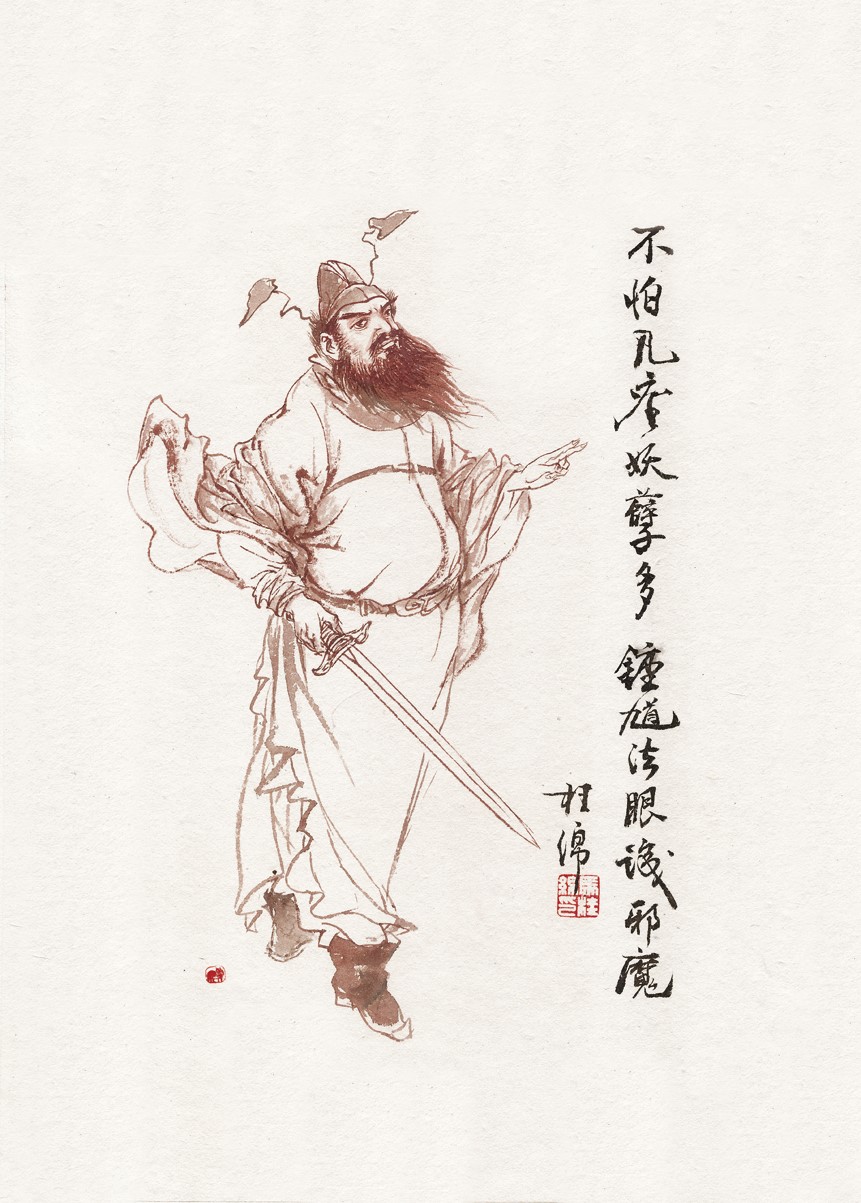 不怕凡塵妖孽多 鍾馗法眼識邪魔
桂綿